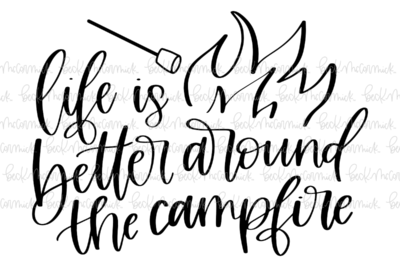 life is
better around
the campfire